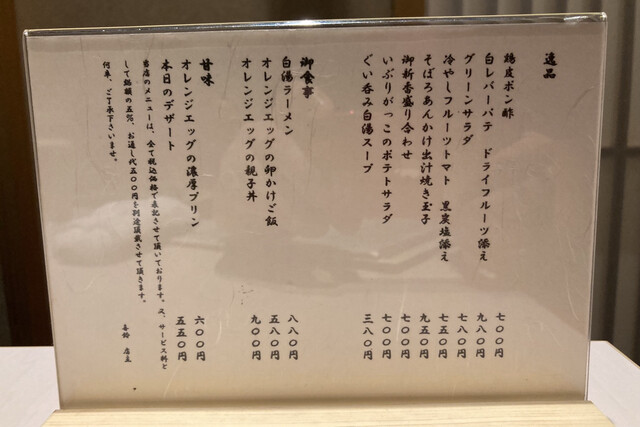 逸品
鶏皮ポン酢 七〇〇円
白レバーパテ ドライフルーツ添え 九八〇円
グリーンサラダ 七八〇円
冷やしフルーツトマト 黒炭塩添え 七五〇円
そぼろあんかけ出汁焼き玉子 九五〇円
御新香盛り合わせ 七〇〇円
いぶりがっこのポテトサラダ 七〇〇円
ぐい呑み白湯スープ 三八〇円
御食事
白湯ラーメン 八八〇円
オレンジエッグの卵かけご飯 五八〇円
オレンジエッグの親子丼 九〇〇円
甘味
オレンジエッグの濃厚プリン 六〇〇円
本日のデザート 五五〇円
当店のメニューは、全て税込価格で表記させて頂いております。又、サービス料と
して総額の五%、お通し代五〇〇円を別途頂戴させて頂きます。
何卒、ご了承下さいませ。
喜鈴 店主